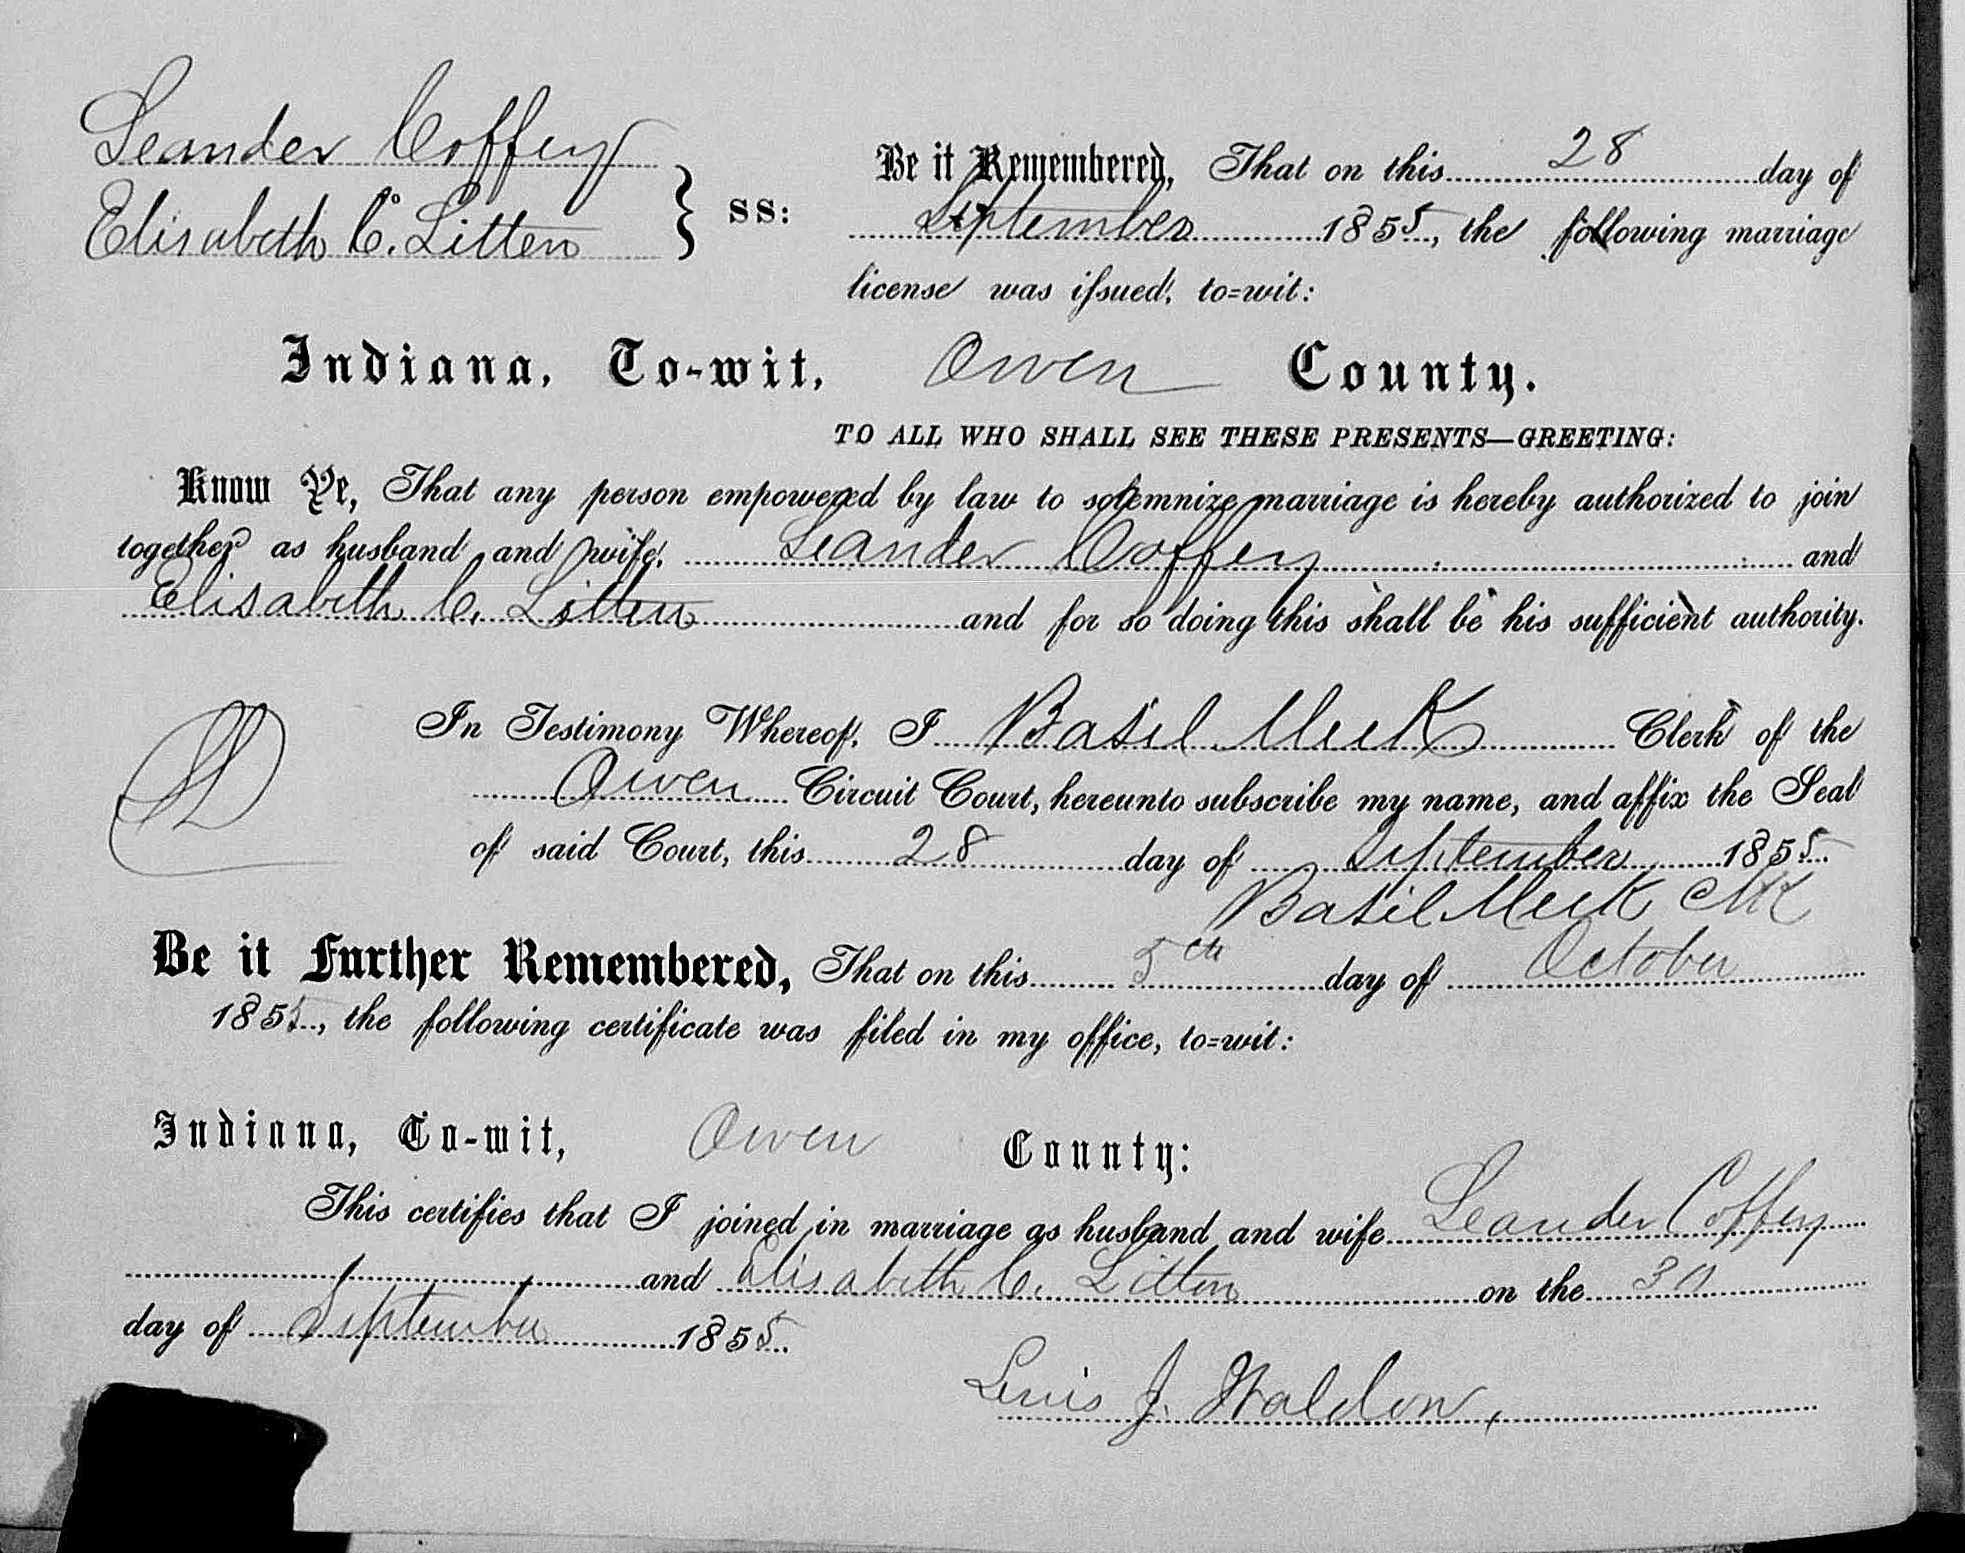 Leander Coffey
Elisabeth C. Litten
} SS:
Be it Remembered, That on this 28 day of
September 1855, the following marriage
license was issued, to=wit:
Indiana, To-wit, Owen County.
TO ALL WHO SHALL SEE THESE PRESENTS—GREETING:
Know Ye, That any person empowered by law to solemnize marriage is hereby authorized to join
together as husband and wife, Leander Coffey and
Elisabeth C. Litten and for so doing this shall be his sufficient authority.
In Testimony Whereof, I Basil Meek Clerk of the
Owen Circuit Court, hereunto subscribe my name, and affix the Seal
of said Court, this 28 day of September 1855.
Basil Meek Clk
Be it Further Remembered, That on this 5th day of October
1855, the following certificate was filed in my office, to=wit:
Indiana, To-wit, Owen County:
This certifies that I joined in marriage as husband and wife Leander Coffey
and Elisabeth C. Litton on the 30
day of September 1855.
Lewis J. Waldon,